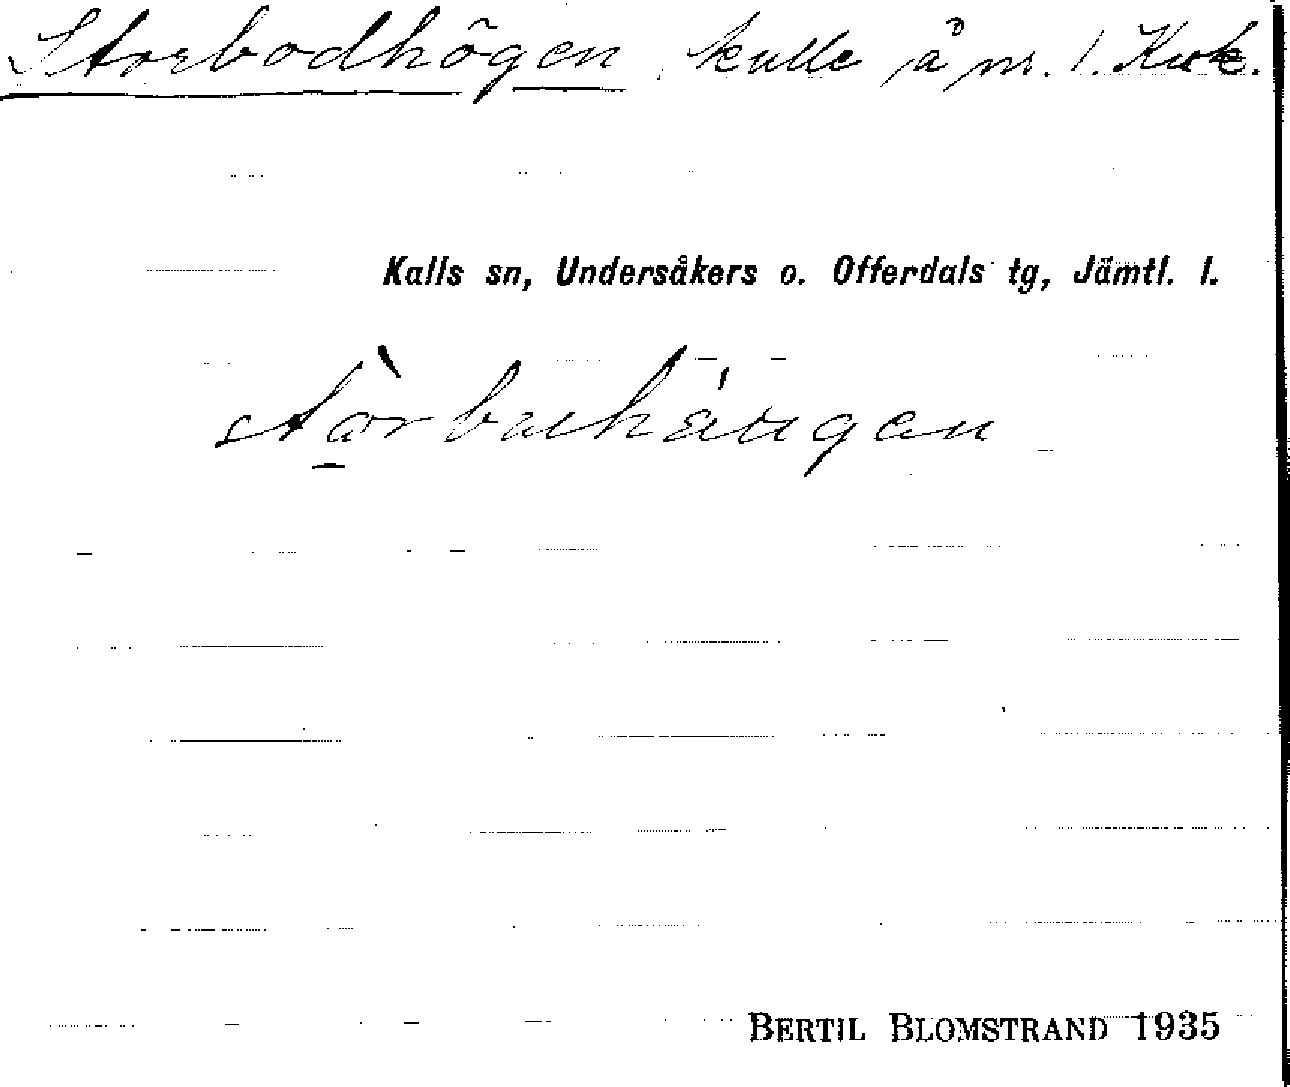 Storbodhögen, kulle å nr. 1. Kvk.
Kalls sn, Undersåkers o. Offerdals tg, Jämtl. l.
BERTIL BLOMSTRAND 1935